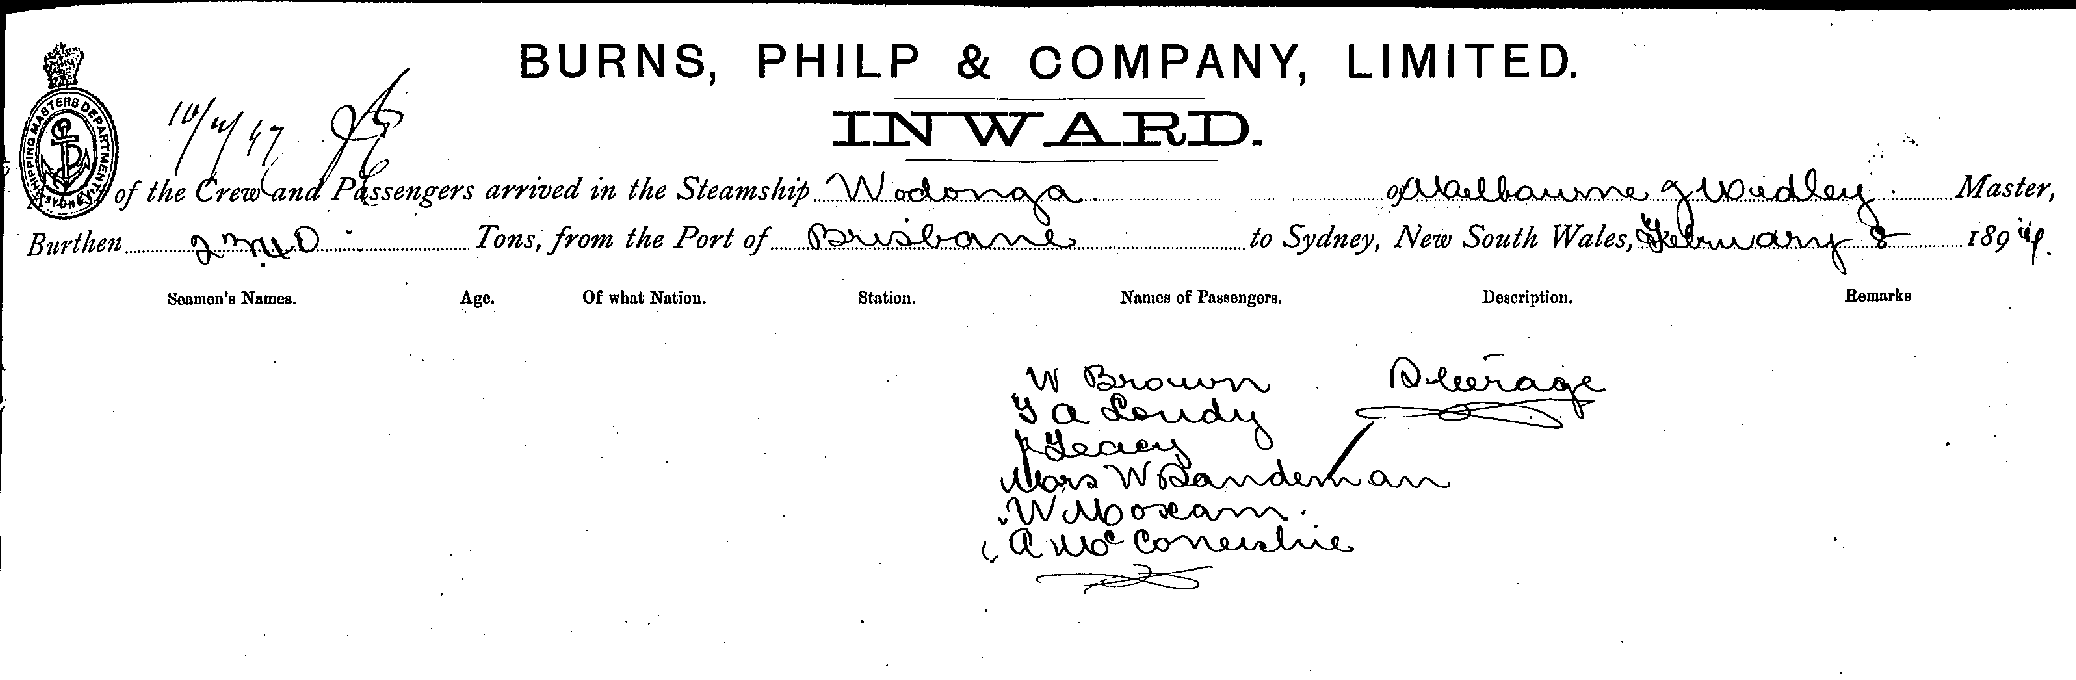 BURNS, PHILP & COMPANY, LIMITED.
INWARD.
SHIPPING MASTERS DEPARTMENT SYDNEY
of the Crew and Passengers arrived in the Steamship Wodonga of Melbourne J Medley Master,
Burthen Tons, from the Port of Brisbane to Sydney, New South Wales, February 8 189
Seamen's Names. Age. Of what Nation. Station. Names of Passengers. Description. Remarks
W Brown Steerage
A Loudy
Mors W Sandeman
W Moxam
A Mc